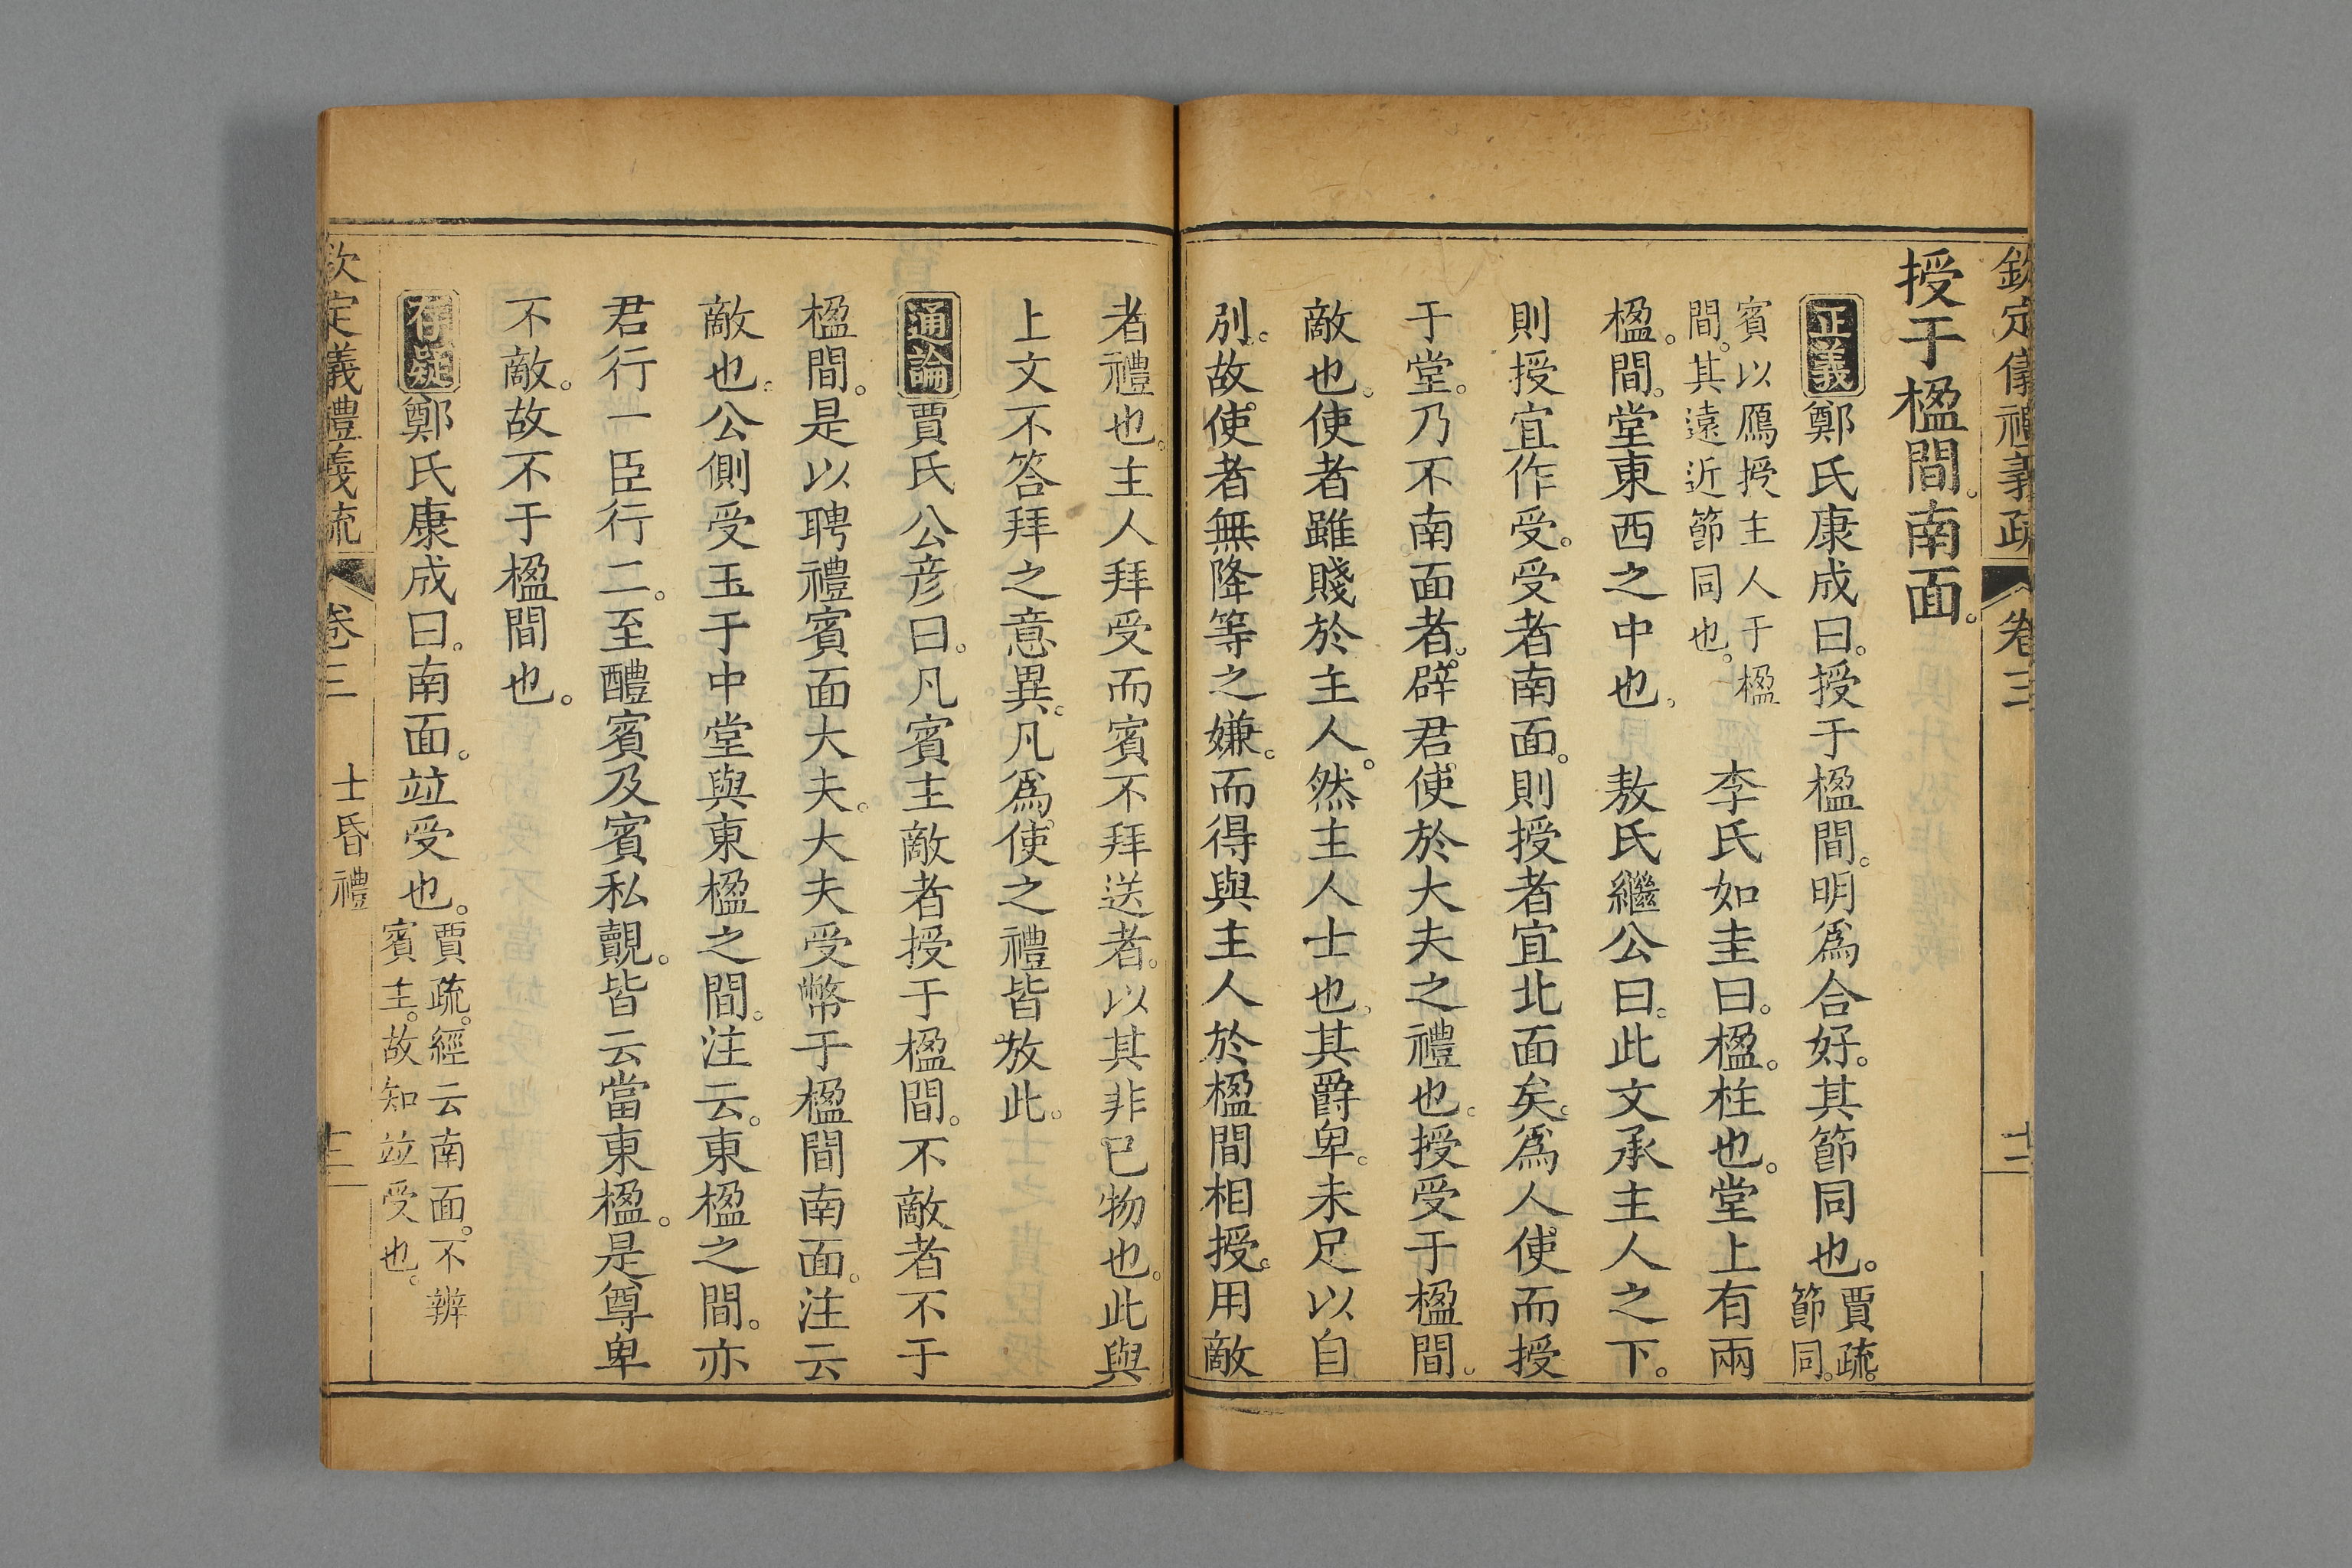 欽定儀禮義疏 卷三 十二
授于楹間。南面。
正義 鄭氏康成曰。授于楹間。明爲合好。其節同也。賈疏。節同。
賓以鴈授主人于楹間。其遠近節同也。 李氏如圭曰。楹。柱也。堂上有兩
楹。間。堂東西之中也。 敖氏繼公曰。此文承主人之下。
則授宜作受。受者南面。則授者宜北面矣。爲人使而授
于堂。乃不南面者。辟君使於大夫之禮也。授受于楹間。
敵也。使者雖賤於主人。然主人士也。其爵卑。未足以自
別。故使者無降等之嫌。而得與主人於楹間相授。用敵
者禮也。主人拜受而賓不拜送者。以其非已物也。此與
上文不答拜之意異。凡爲使之禮皆放此。
通論 賈氏公彦曰。凡賓主敵者授于楹間。不敵者不于
楹間。是以聘禮賓面大夫。大夫受幣于楹間南面。注云
敵也。公側受玉于中堂與東楹之間。注云。東楹之間。亦
君行一臣行二。至醴賓及賓私覿。皆云當東楹。是尊卑
不敵。故不于楹間也。
存疑 鄭氏康成曰。南面。竝受也。賈疏。經云南面。不辨賓主。故知竝受也。
欽定儀禮義疏 卷三 士昏禮 十二